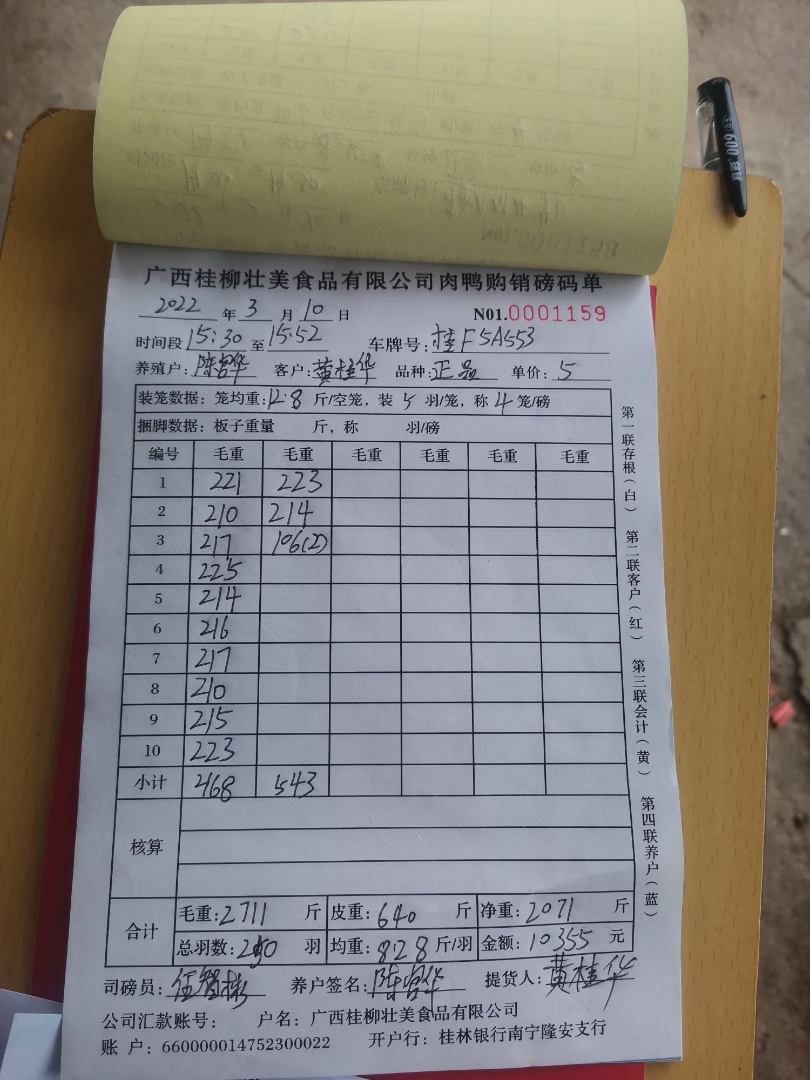 广西桂柳壮美食品有限公司肉鸭购销磅码单
2022 年 3 月 10 日 N01.0001159
时间段 15:30 至 15:52 车牌号: 桂F5A553
养殖户: 陈宫华 客户: 黄桂华 品种: 正品 单价: 5
装笼数据: 笼均重: 12.8 斤/空笼, 装 5 羽/笼, 称 4 笼/磅
捆脚数据: 板子重量 斤, 称 羽/磅
编号 毛重 毛重 毛重 毛重 毛重 毛重
1 221 223
2 210 214
3 217 106(2)
4 225
5 214
6 216
7 217
8 210
9 215
10 223
小计 2168 543
核算
合计 毛重: 2711 斤 皮重: 640 斤 净重: 2071 斤
总羽数: 250 羽 均重: 8.28 斤/羽 金额: 10355 元
司磅员: 伍智彬 养户签名: 陈宫华 提货人: 黄桂华
公司汇款账号: 户名: 广西桂柳壮美食品有限公司
账 户: 660000014752300022 开户行: 桂林银行南宁隆安支行
第一联存根(白) 第二联客户(红) 第三联会计(黄) 第四联养户(蓝)
600